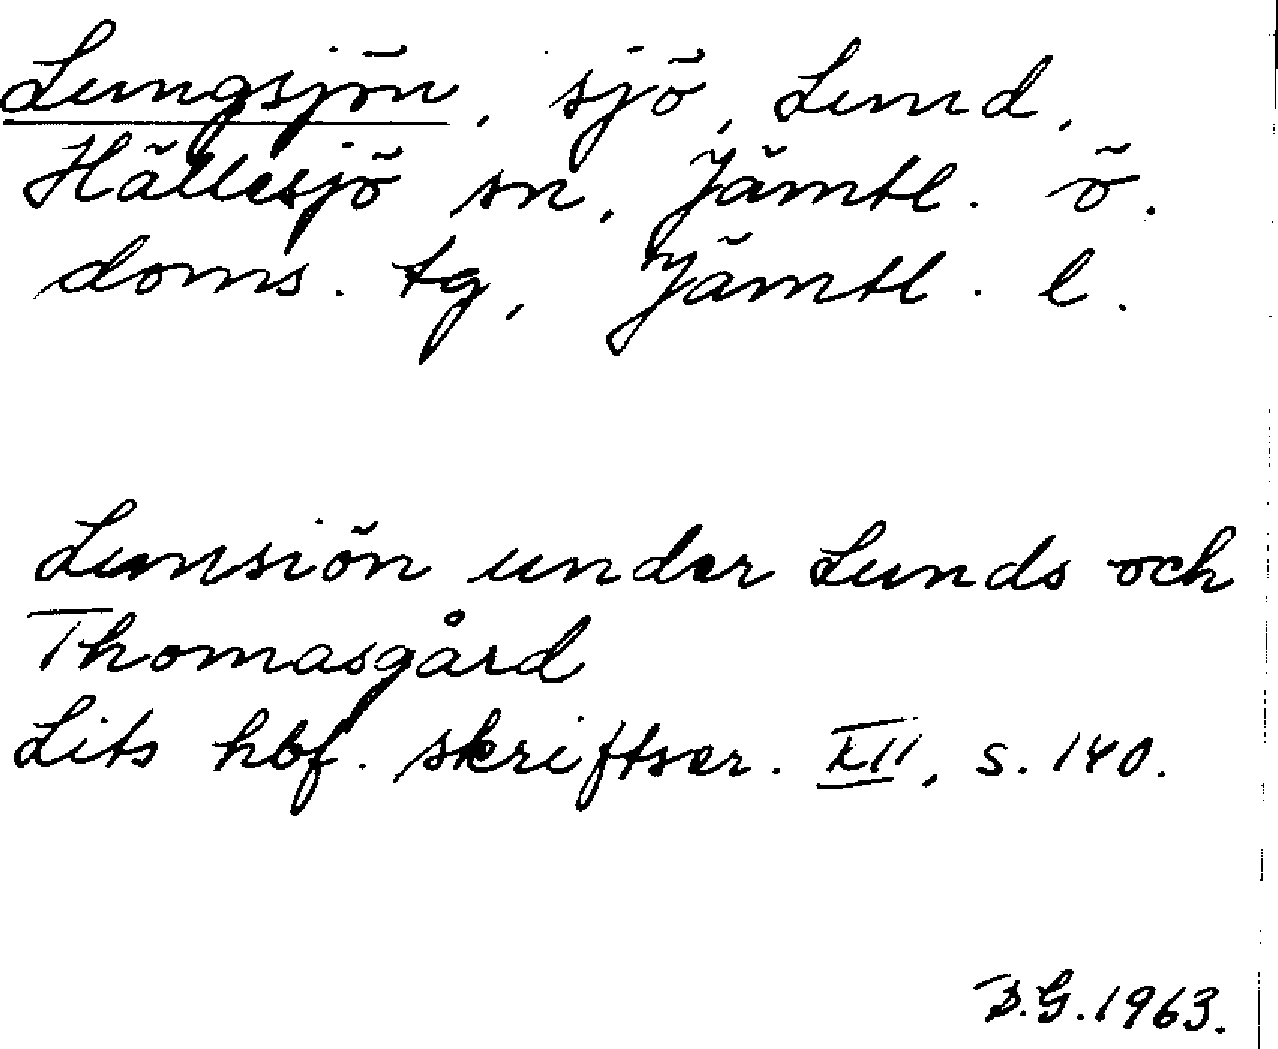 Lungsjön, sjö, Lund,
Hällesjö sn, Jämtl. ö.
doms. tg, Jämtl. l.
Lunsiön under Lunds och
Thomasgård
Lits hbf. skriftser. XII, s. 140.
B.G. 1963.